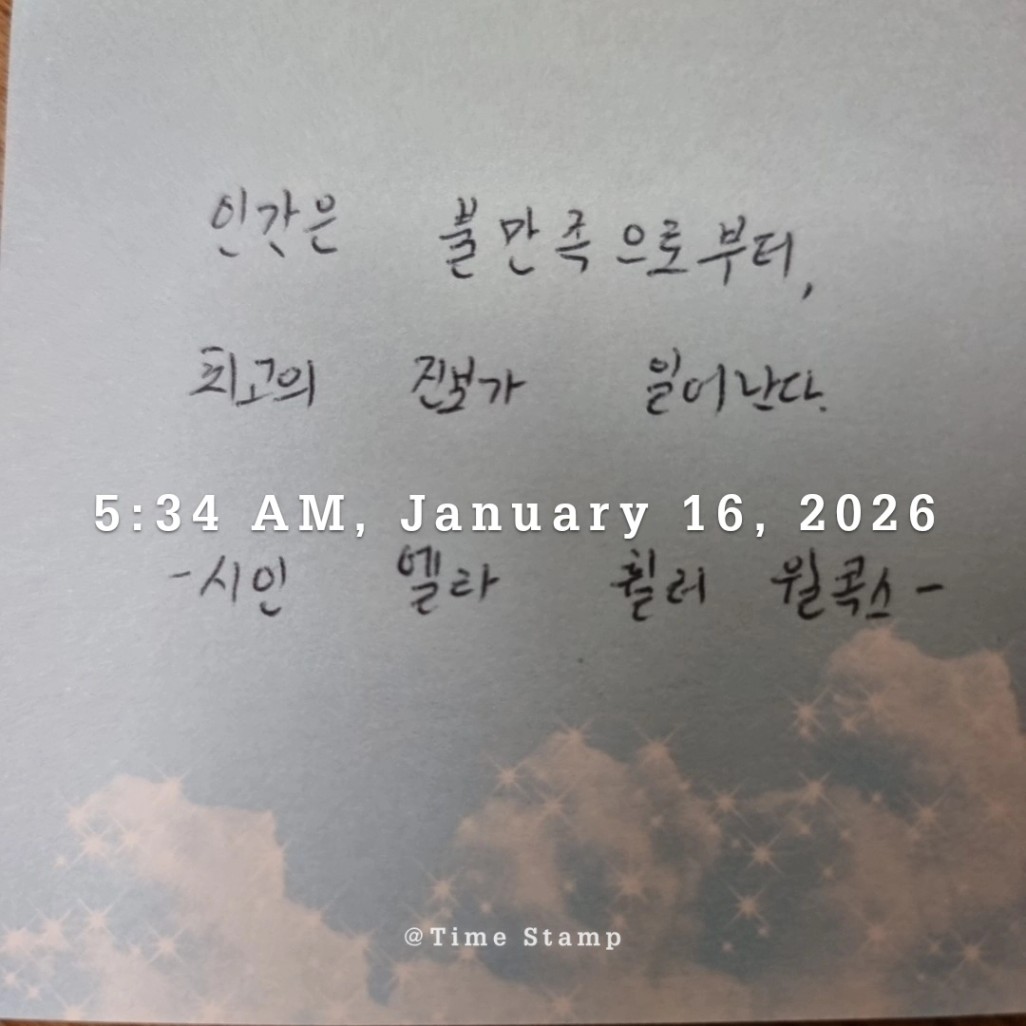 인간은 불만족으로부터,
최고의 진보가 일어난다.
5:34 AM, January 16, 2026
-시인 엘라 휠러 윌콕스-
@Time Stamp